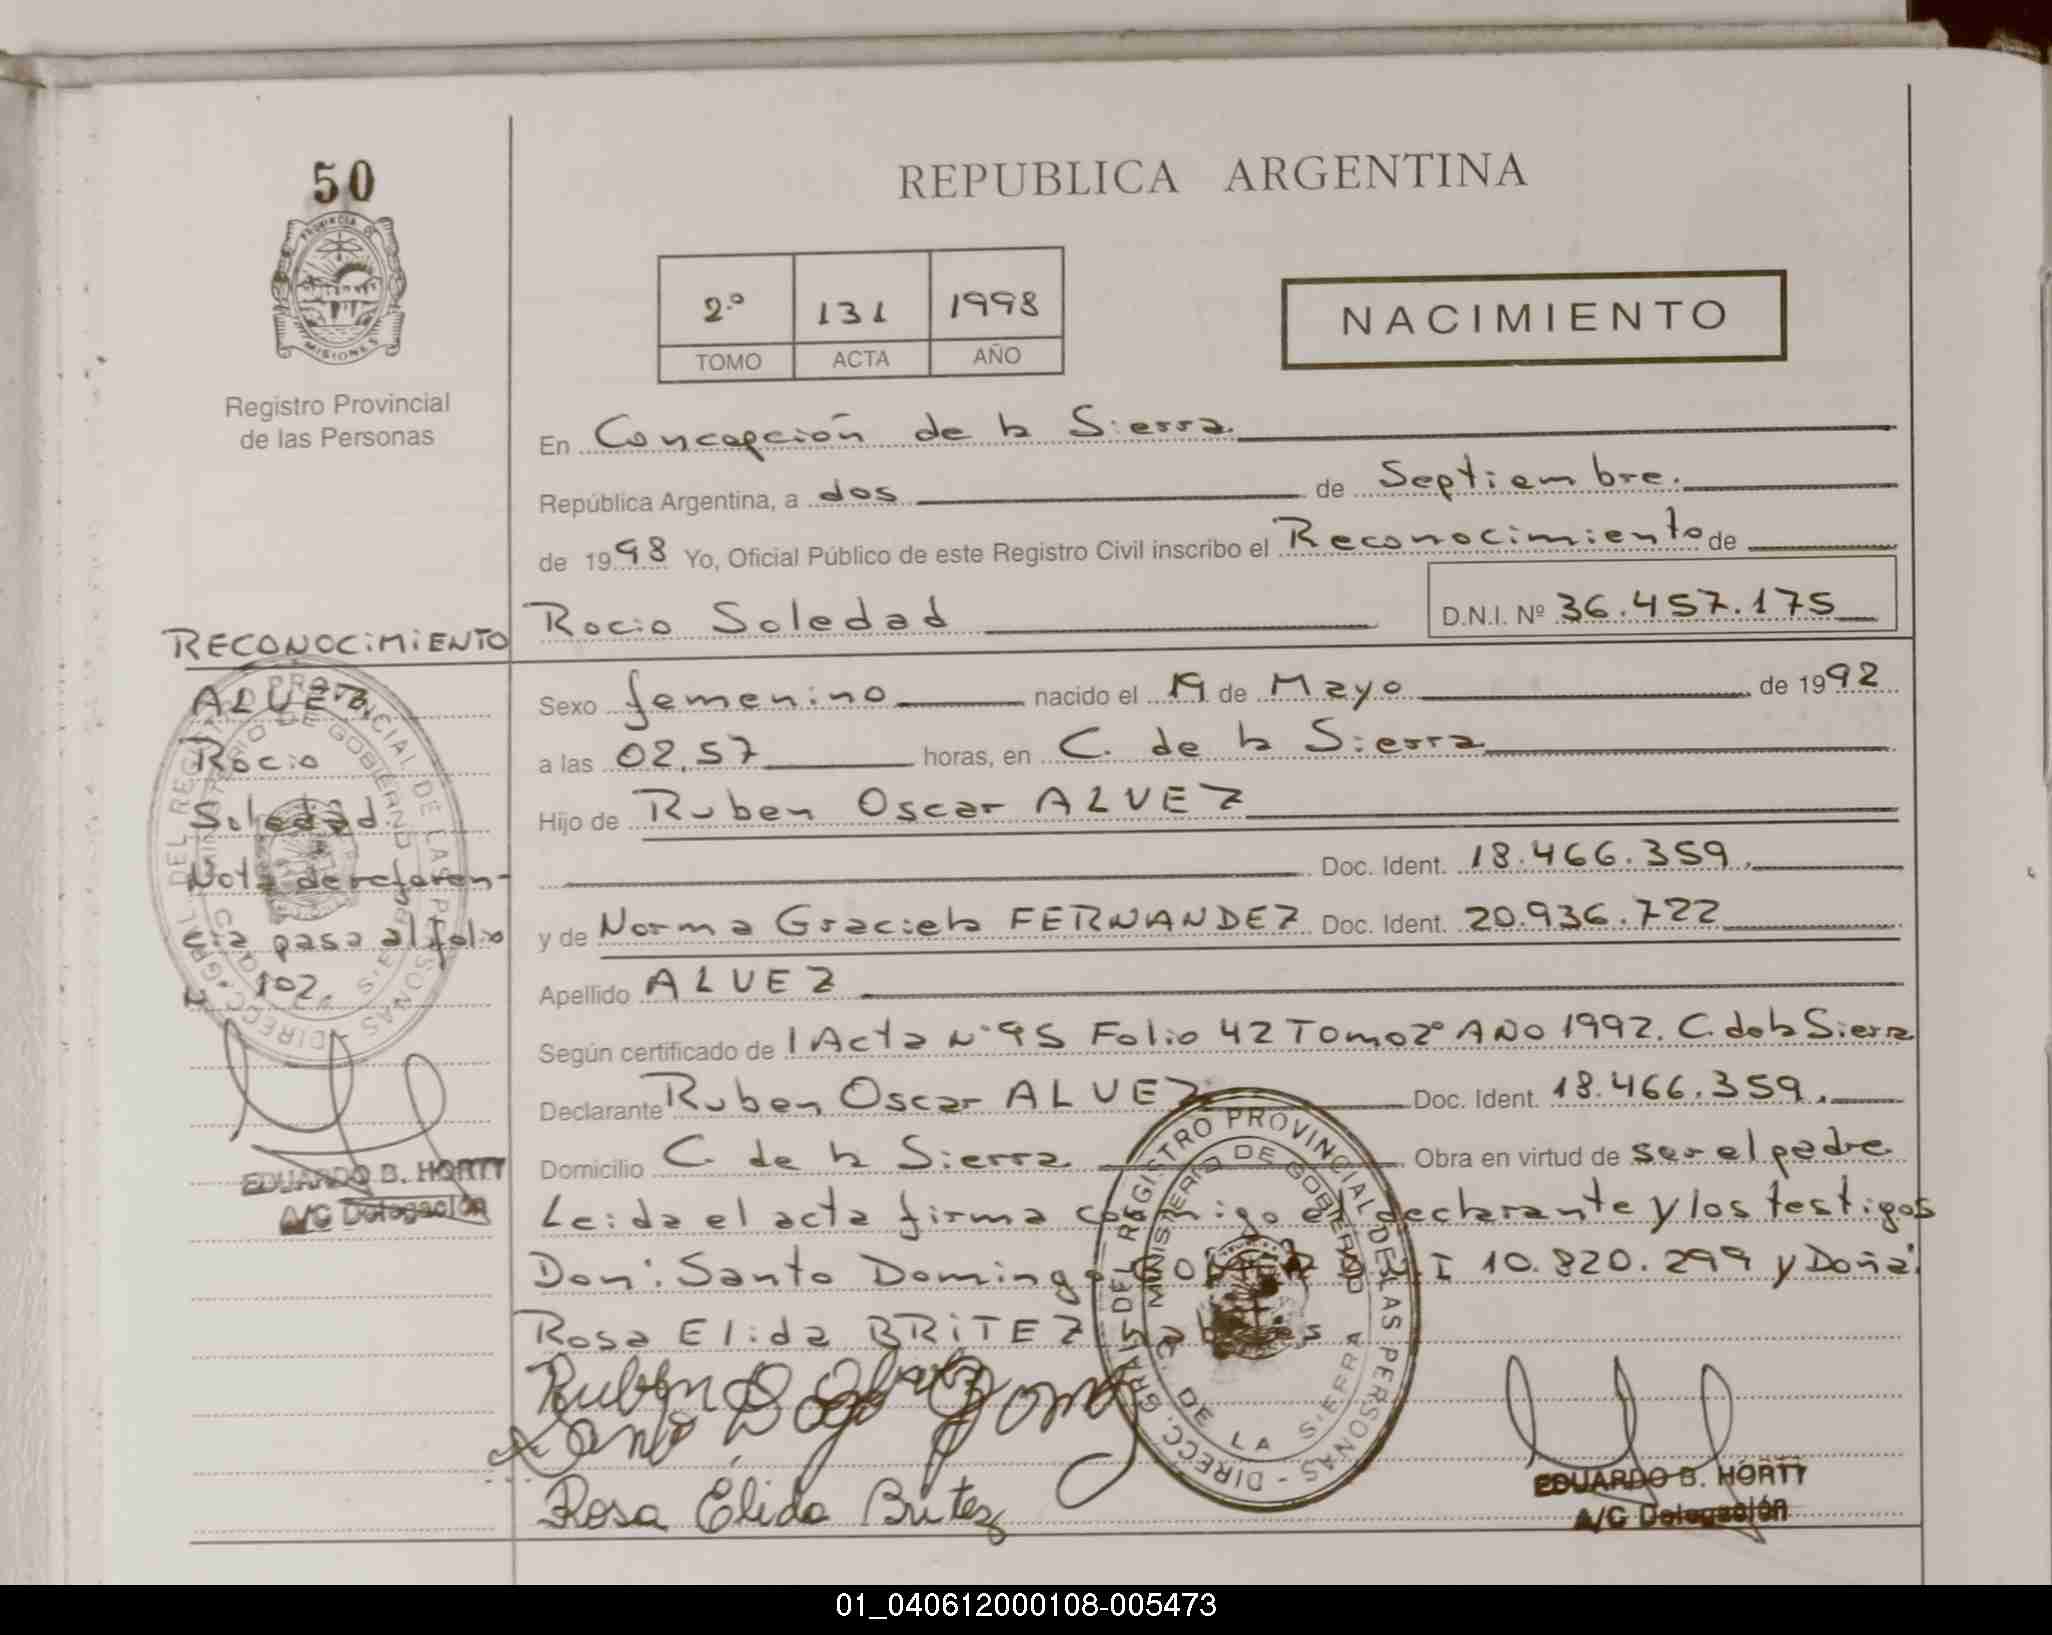 50
PROVINCIA DE
MISIONES
Registro Provincial
de las Personas
REPUBLICA ARGENTINA
2.º 131 1998
TOMO ACTA AÑO
NACIMIENTO
En Concepción de la Sierra.
República Argentina, a dos de Septiembre.
de 1998 Yo, Oficial Público de este Registro Civil inscribo el Reconocimiento de
Rocio Soledad D.N.I. Nº 36.457.175
RECONOCIMIENTO
ALVEZ,
Rocio
Soledad.
Nota de referen-
cia pasa al folio
N. 102.
EDUARDO B. HORTT
A/C Delegación
Sexo femenino nacido el 19 de Mayo de 1992
a las 02,57 horas, en C. de la Sierra
Hijo de Ruben Oscar ALVEZ
Doc. Ident. 18.466.359.
y de Norma Graciela FERNANDEZ Doc. Ident. 20.936.722
Apellido ALVEZ
Según certificado de 1 Acta Nº 95 Folio 42 Tomo 2º AÑO 1992. C. de la Sierra
Declarante Ruben Oscar ALVEZ Doc. Ident. 18.466.359.
Domicilio C. de la Sierra Obra en virtud de ser el padre
Leida el acta firma conmigo el declarante y los testigos
Don: Santo Domingo I 10.820.299 y Doña:
Rosa Elida BRITEZ
Ruben O Alvez
Rosa Elida Britez
DIRECC. GRAL. DEL REGISTRO PROVINCIAL DE LAS PERSONAS
MINISTERIO DE GOBIERNO
C. DE LA SIERRA
EDUARDO B. HORTT
A/C Delegación
01_040612000108-005473